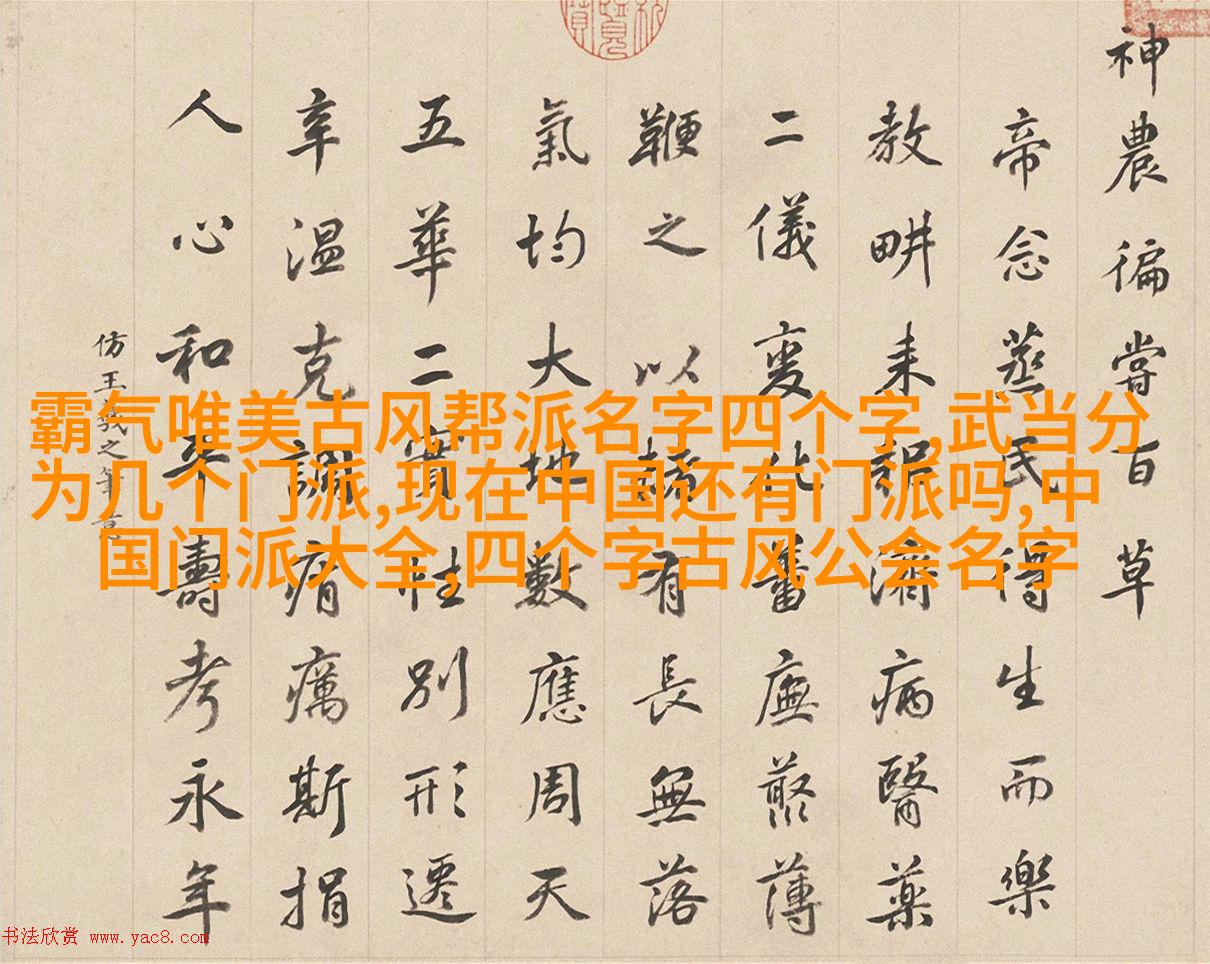 神農徧嘗百草
帝念蒸民得生而樂
教畊耒耜濟病醫藥
二儀變化蕃廡藂薄
鞭之以赭有長無落
氣均大地數應周天
五華二實性別形遷
辛溫克調痟癘斯捐
人心和平壽考永年
仿王羲之筆意
霸气唯美古风帮派名字四个字,武当分
为几个门派,现在中国还有门派吗,中
国门派大全,四个字古风公会名字
书法欣赏 www.yac8.com